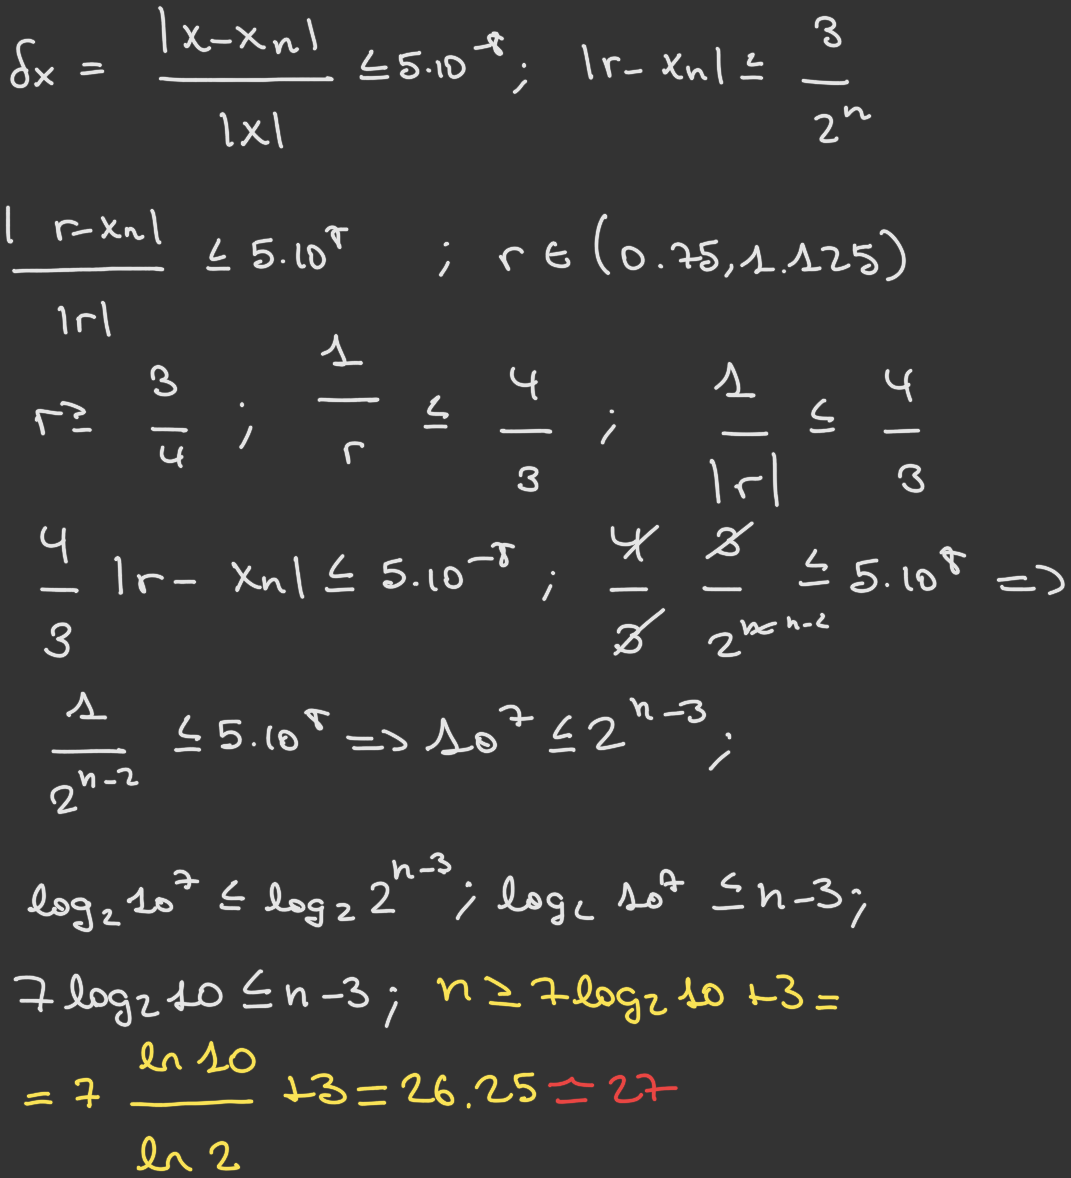 δx = |x-xn| / |x| ≤ 5.10^-8; |r-xn| ≤ 3 / 2^n
|r-xn| / |r| ≤ 5.10^8 ; r ∈ (0.75,1.125)
r ≥ 3/4 ; 1/r ≤ 4/3 ; 1/|r| ≤ 4/3
4/3 |r-xn| ≤ 5.10^-8 ; 4/3 3/2^n n-2 ≤ 5.10^8 =>
1/2^n-2 ≤ 5.10^8 => 10^7 ≤ 2^n-3;
log2 10^7 ≤ log2 2^n-3; log2 10^7 ≤ n-3;
7 log2 10 ≤ n-3; n ≥ 7 log2 10 +3 =
= 7 ln 10 / ln 2 +3 = 26.25 ≃ 27